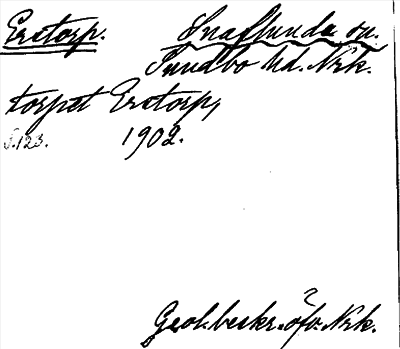 Erstorp. Snaflunda sn.
Sundbo hd. Nrk.
torpet Erstorp,
S. 123. 1902.
Geol. beskr. öfv. Nrk.